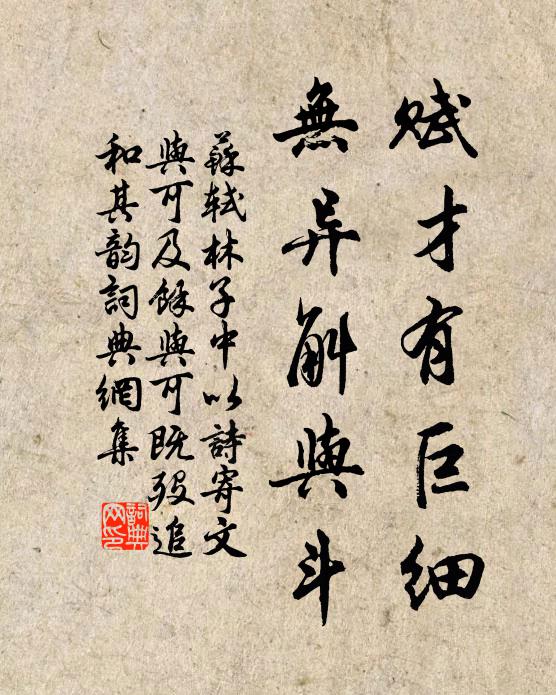 赋才有巨细
無异斛與斗
蘇軾林子中以詩寄文
與可及餘與可既殁追
和其韵詞典網集
詞典网印